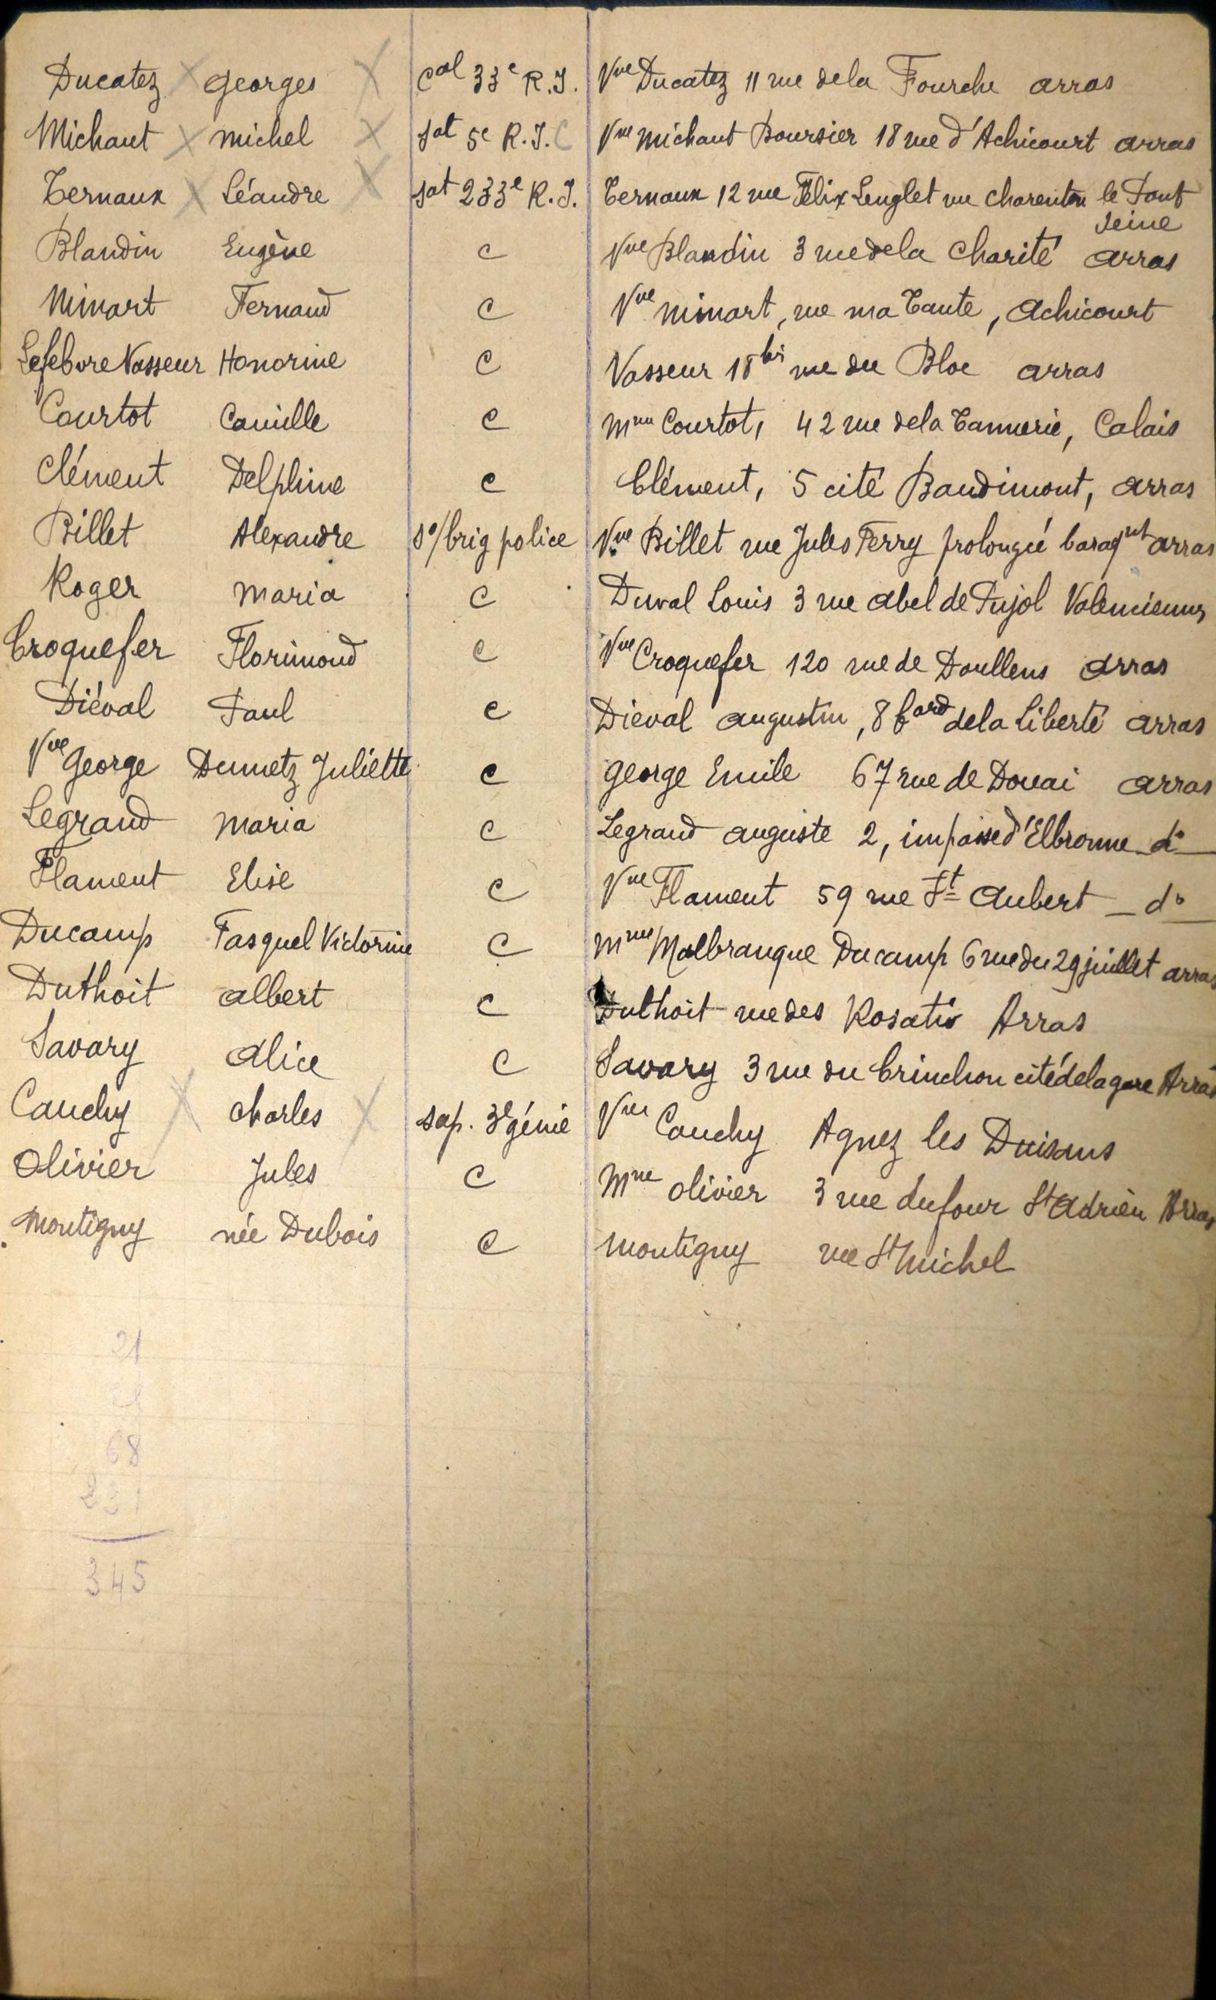 Ducatez X Georges X Cal 33e R.I. Vve Ducatez 11 rue de la Fourche Arras
Michaut X Michel X Sat 5e R.I.C Vve Michaut Boursier 18 rue d'Achicourt Arras
Ternaux X Léandre X Sat 233e R.I. Ternaux 12 rue Félix Lenglet Charenton le Pont
Seine
Blandin Eugène C Vve Blandin 3 rue de la Charité Arras
Minart Fernand C Vve Minart, rue ma Tante, Achicourt
Lefebvre Vasseur Honorine C Vasseur 18 bis rue du Bloc Arras
Courtot Camille C Mme Courtot, 42 rue de la Tannerie, Calais
Clément Delphine C Clément, 5 cité Baudimont, Arras
Billet Alexandre So/brig police Vve Billet rue Jules Ferry prolongée baraqnt Arras
Roger Maria C Duval Louis 3 rue Abel de Pujol Valenciennes
Croquefer Florimond C Vve Croquefer 120 rue de Doullens Arras
Diéval Paul C Diéval Augustin, 8 bard de la Liberté Arras
Vve George Demetz Juliette C George Emile 67 rue de Douai Arras
Legrand Maria C Legrand Auguste 2, impasse d'Elbronne do
Flament Elise C Vve Flament 59 rue St Aubert _ do
Ducamp Fasquel Victorine C Mme Malbranque Ducamp 6 rue du 29 juillet Arras
Duthoit Albert C Duthoit rue des Rosatis Arras
Savary Alice C Savary 3 rue du Crinchon cité de la gare Arras
Cauchy X Charles X sap. 3e génie Vve Cauchy Agnez les Duisans
Olivier Jules C Mme Olivier 3 rue du four St Adrien Arras
Montigny née Dubois C Montigny rue St Michel
21
68
231
345